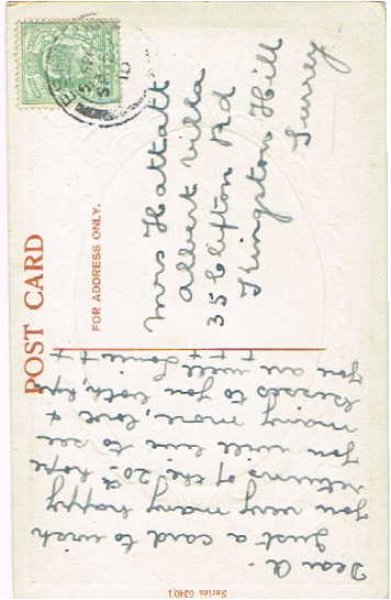 POST CARD
FOR ADDRESS ONLY.
Mrs Hattatt
Albert Villa
35 Clifton Rd
Kingston Hill
Surrey
Dear A.
Just a card to wish
you very many happy
returns of the 20th hope
you will live to see
many more, love &
kisses to you both, hope
you are well
Series 6340 1